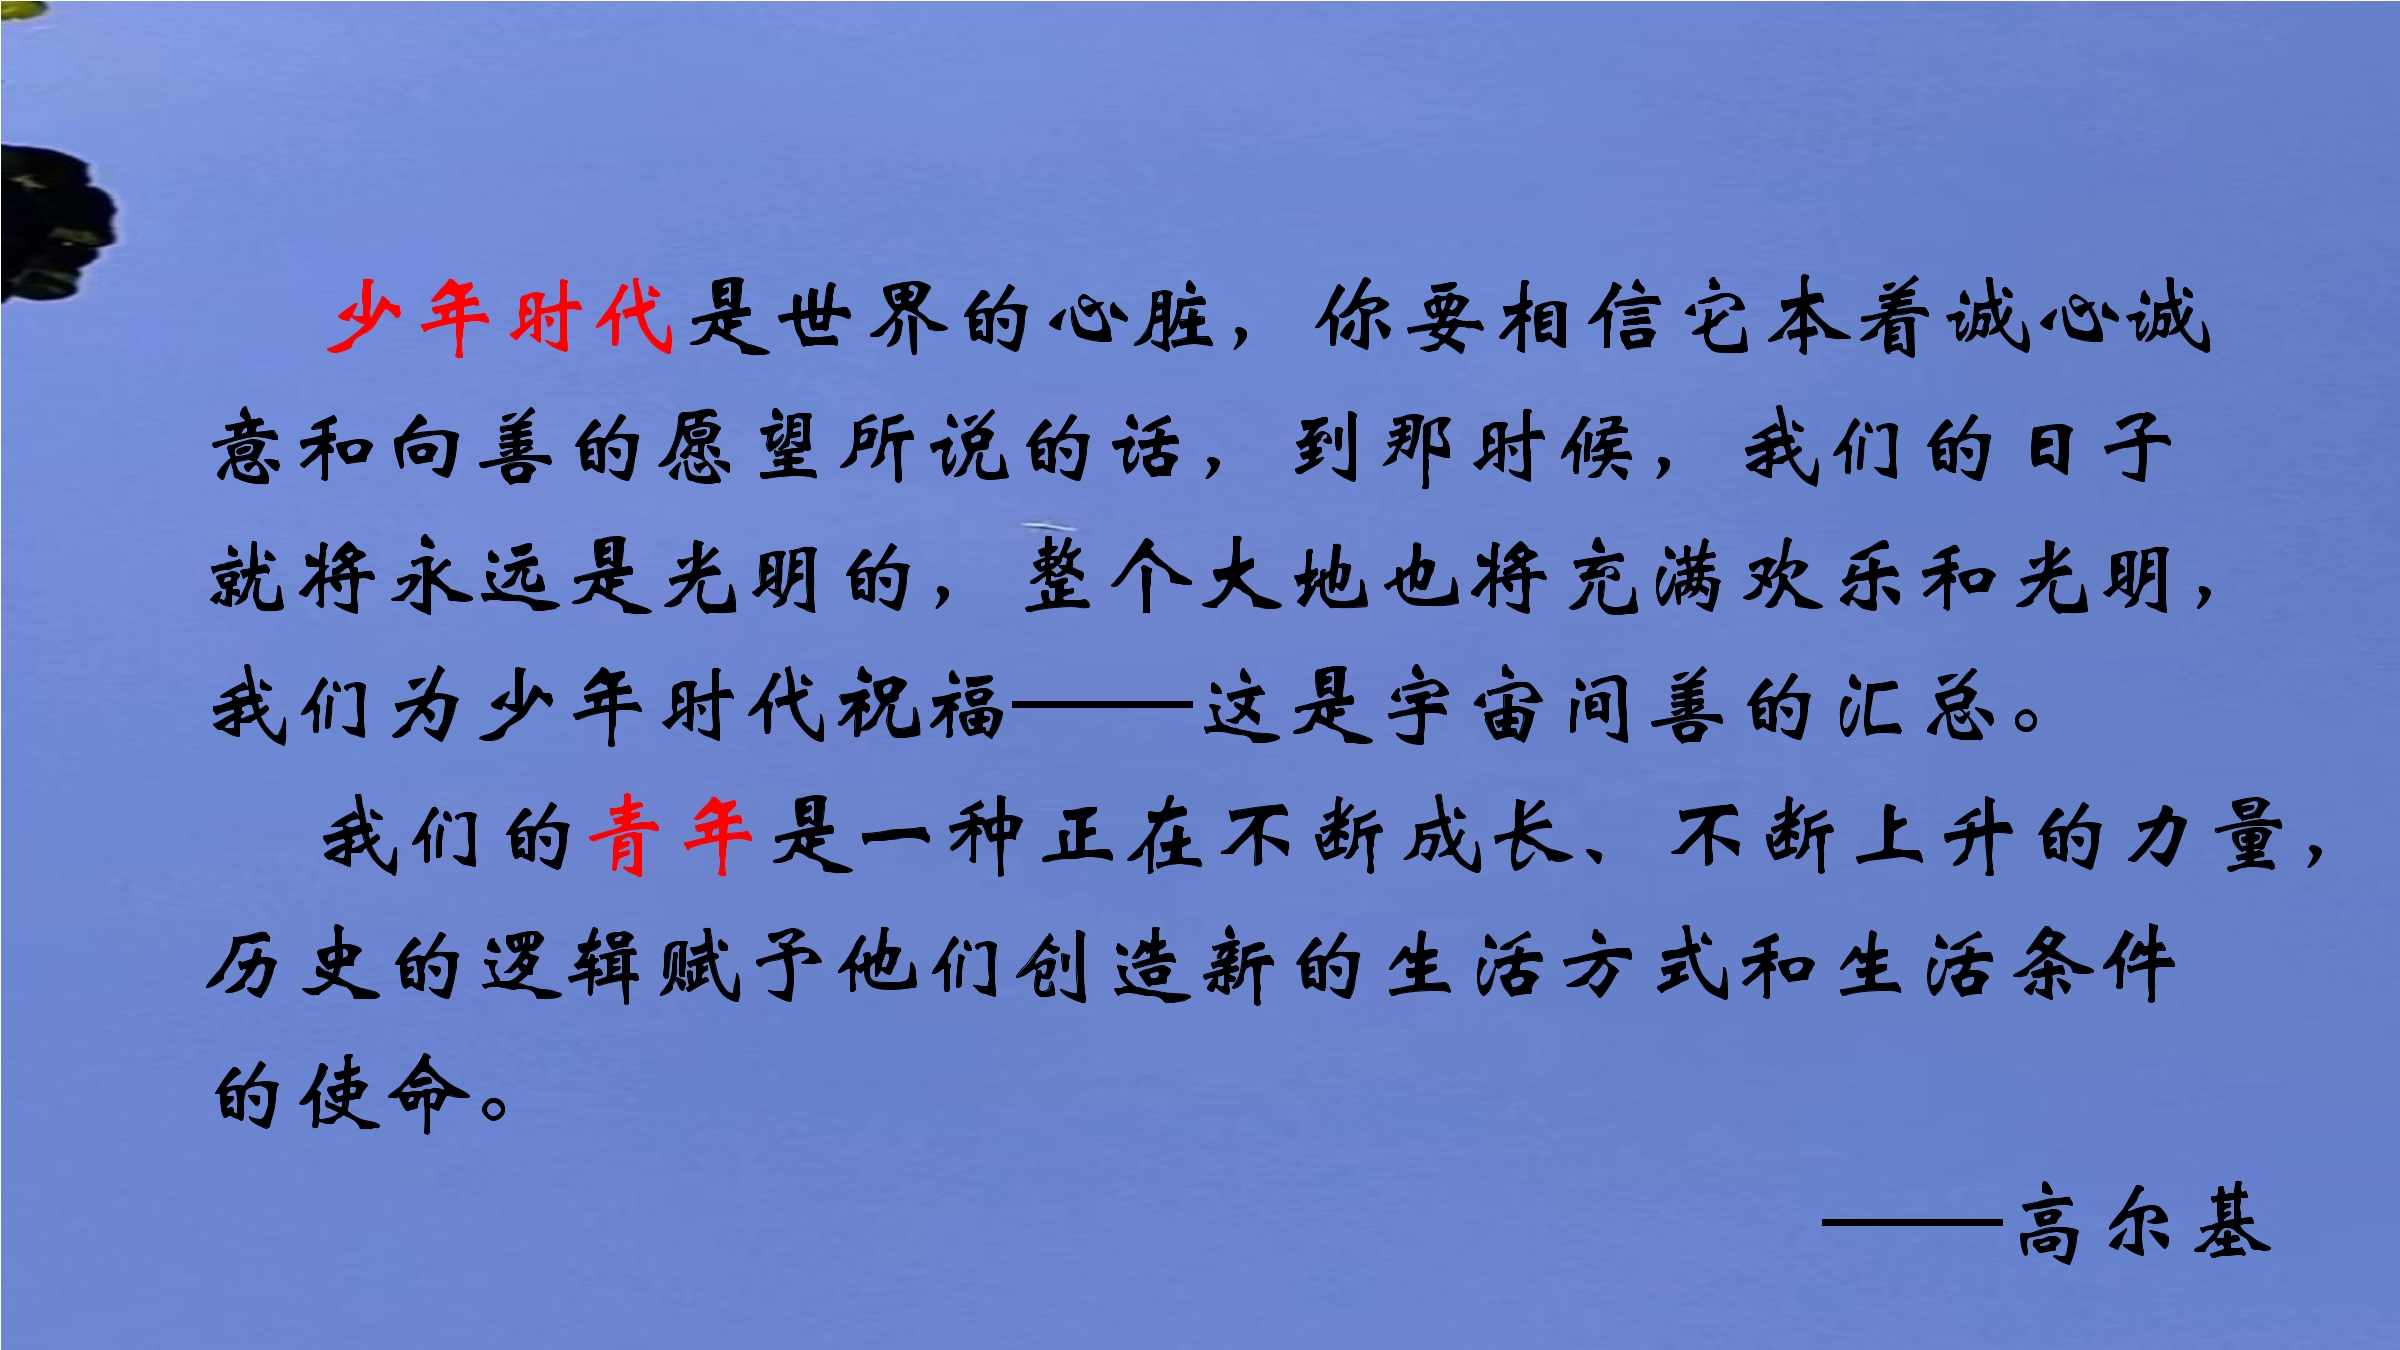 少年时代是世界的心脏，你要相信它本着诚心诚
意和向善的愿望所说的话，到那时候，我们的日子
就将永远是光明的，整个大地也将充满欢乐和光明，
我们为少年时代祝福——这是宇宙间善的汇总。
我们的青年是一种正在不断成长、不断上升的力量，
历史的逻辑赋予他们创造新的生活方式和生活条件
的使命。
——高尔基